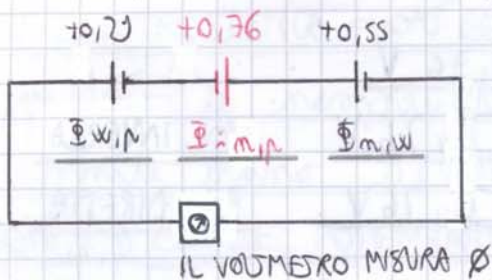 +0,21 +0,76 +0,55
Φw,p Φi n,p Φn,w
IL VOLTMETRO MISURA Ø